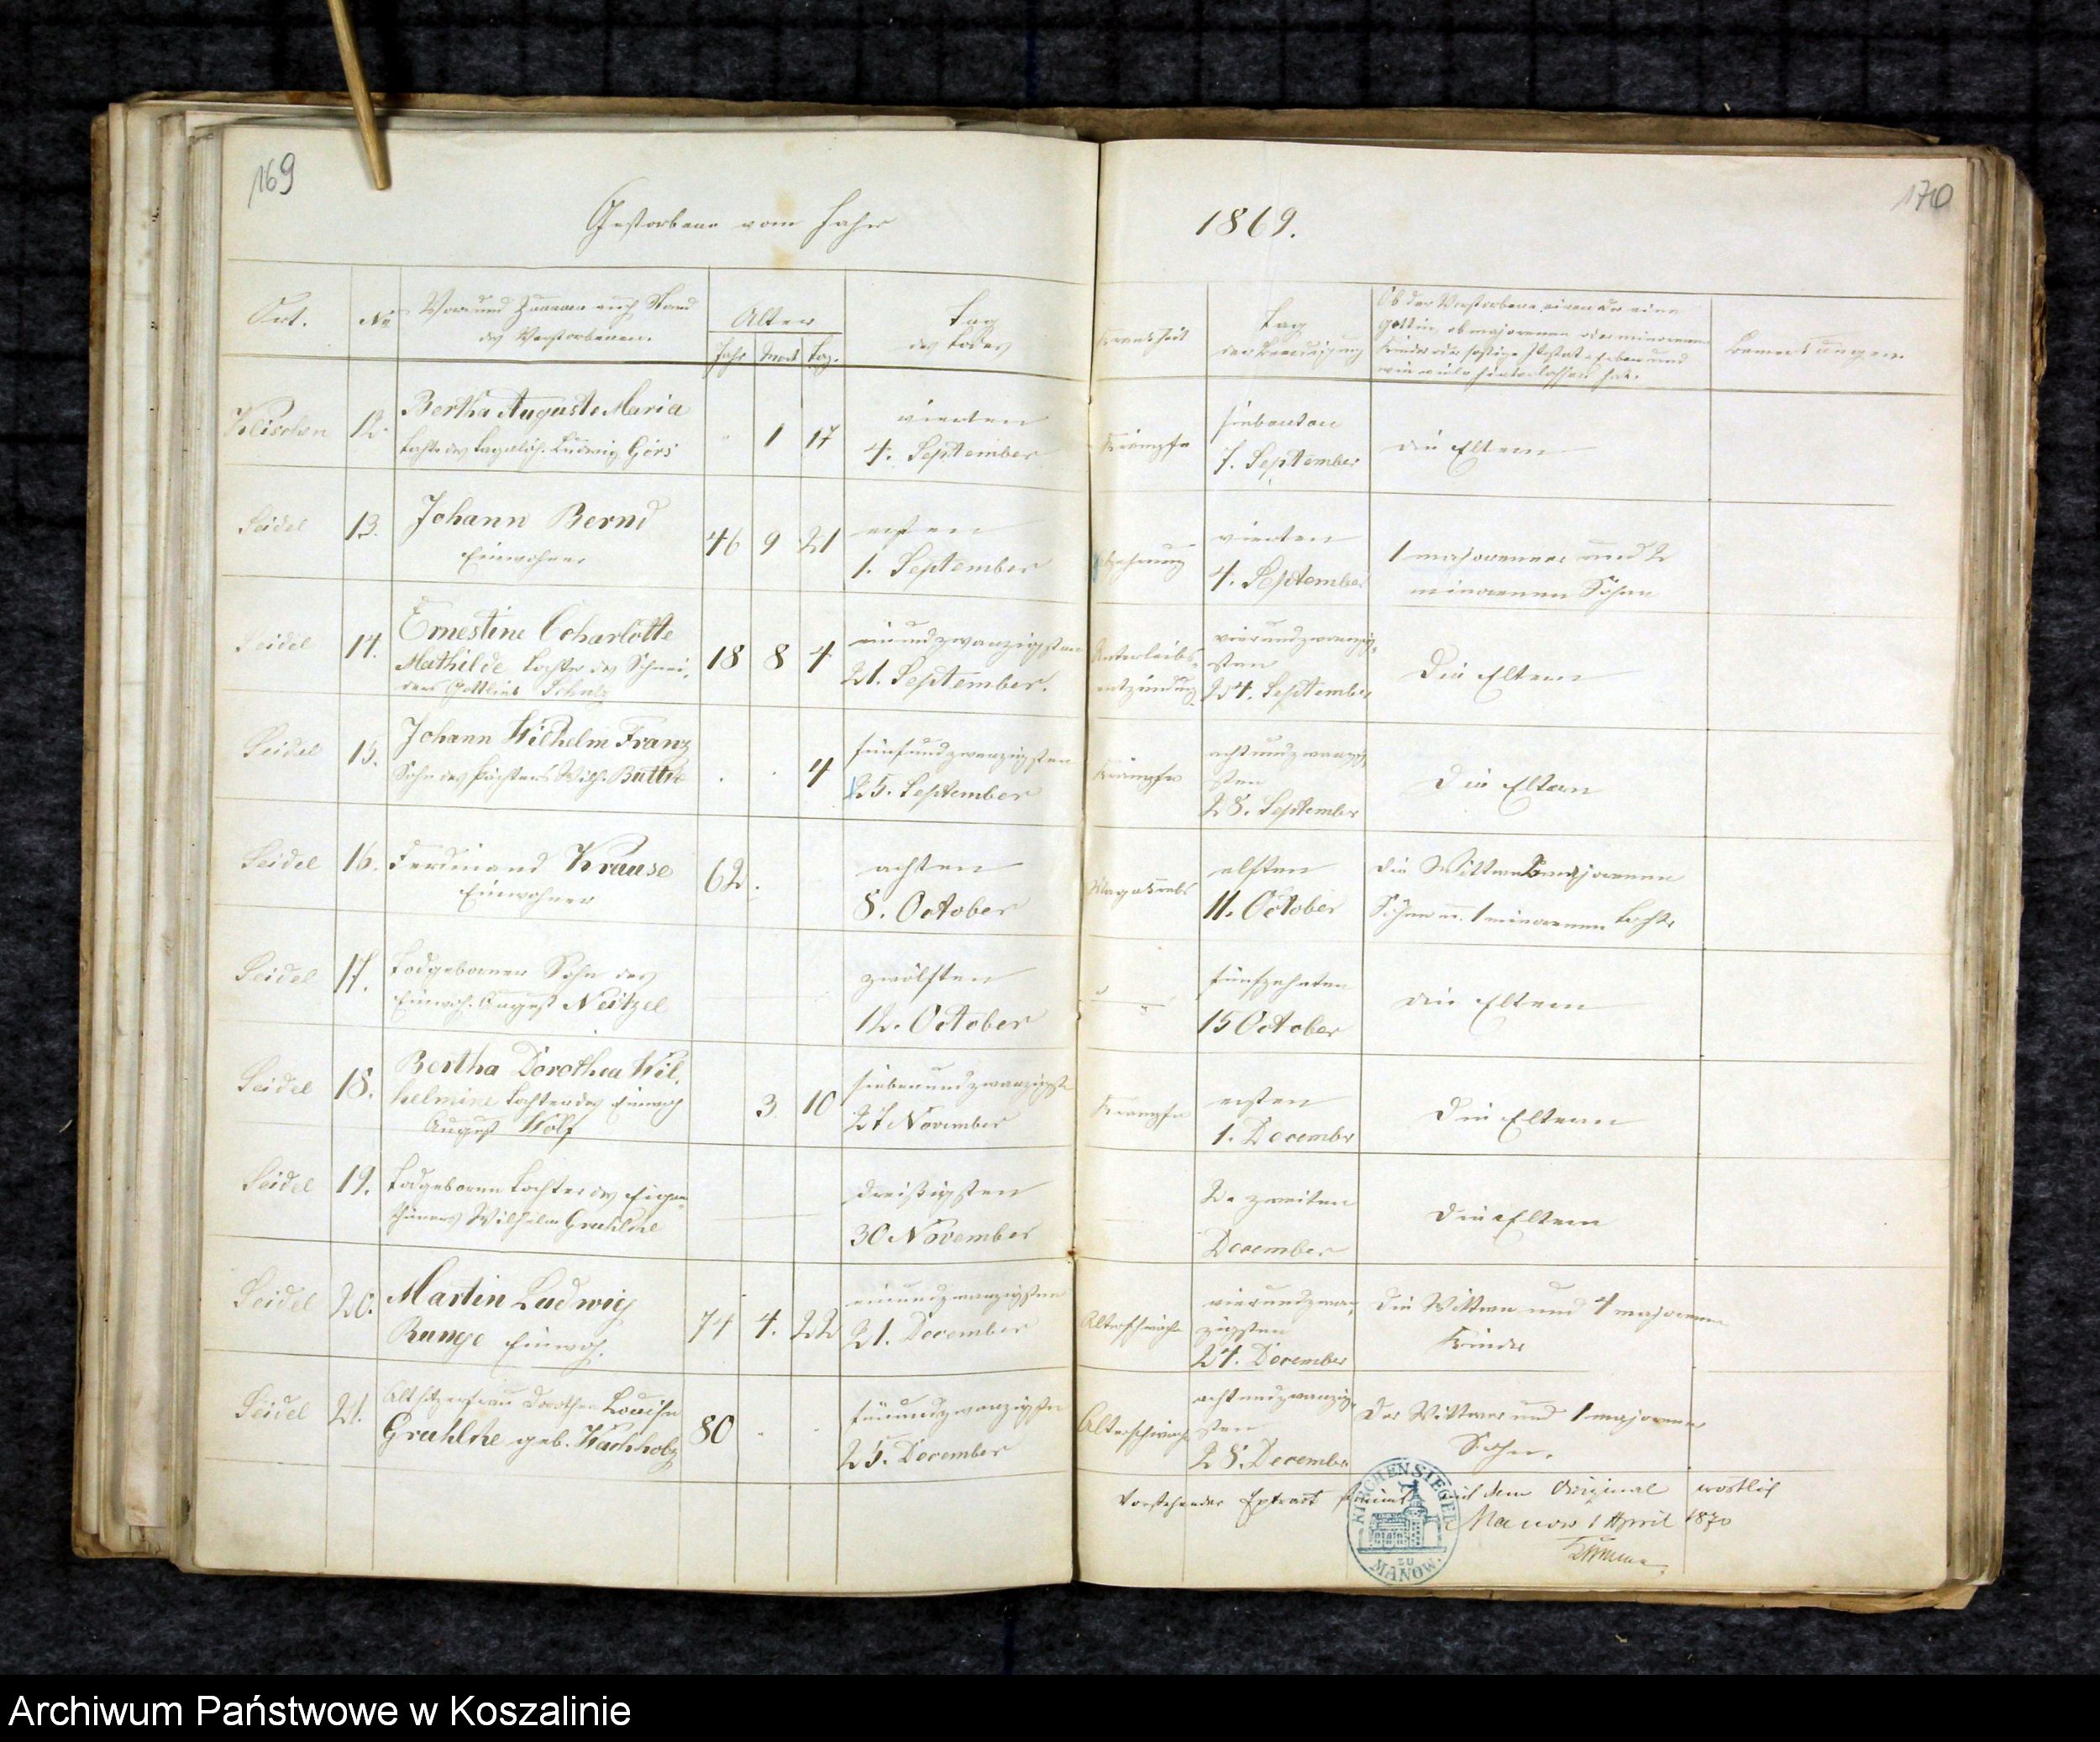 169
170
Gestorbene vom Jahr
1869.
Ort.
No
Vor und Zunamen auch Stand
des Verstorbenen.
Alter
Jahr
Mon
Tag.
Tag
des Todes
Krankheit
Tag
der Beerdigung
Ob der Verstorbene einen oder eine
Gattin, ob majorenne oder minorenne
Kinder oder sonstige Erben und
wie viele hinterlassen hat.
Bemerkungen.
12.
Bertha Auguste Maria
Tocht. des Tagelöh. Ludwig Görs
" 1 17
vierten
4. September
Krämpfe
siebenten
7. September
die Eltern
Seidel
13.
Johann Bernd
Einwohner
46 9 21
ersten
1. September
Abzehrung
vierten
4. September
1 majorenner und 2
minorennen Söhne
Seidel
14.
Ernestine Charlotte
Mathilde Tochter des Schnei-
ders Gottlieb Schulz
18 8 4
einundzwanzigsten
21. September.
Unterleibs-
entzündung
vierundzwanzig-
sten
24. September
Die Eltern
Seidel
15.
Johann Wilhelm Franz
Sohn des Pächters Wilh. Buttke
. . 4
fünfundzwanzigsten
25. September
Krämpfe
achtundzwanzig
sten
28. September
Die Eltern
Seidel
16.
Ferdinand Krause
Einwohner
62.
achten
8. October
Magenkrebs
elften
11. October
die Wittwe 2 majorenne
Söhne u. 1 minorenne Tocht.
Seidel
17.
Todgeborner Sohn des
Einwoh. August Neitzel
zwölften
12. October
fünfzehnten
15 October
die Eltern
Seidel
18.
Bertha Dorothea Wil-
helmine Tochter des Einwoh
August Wolf
3 10
siebenundzwanzigst
27 November
Krämpfe
ersten
1. December
Die Eltern
Seidel
19.
Todgeborne Tochter des Eigen-
thümers Wilhelm Gruhlke
dreißigsten
30 November
2. zweiten
December
Die Eltern
Seidel
20.
Martin Ludwig
Runge Einwoh.
74 4. 22
einundzwanzigsten
21. December
Altersschwäche
vierundzwan-
zigsten
24. December
Die Wittwe und 4 majorenne
Kinder
Seidel
21.
Altsitzerfrau Dorothea Louise
Gruhlke geb. Wachholz
80
25. December
Altersschwäche
achtundzwanzig-
sten
28. December
Der Wittwer und 1 majorenner
Sohn.
Vorstehender Extract stimmt mit dem Original wörtlich
Manow 1 April 1870
KIRCHENSIEGEL
ZU
MANOW.
Archiwum Państwowe w Koszalinie